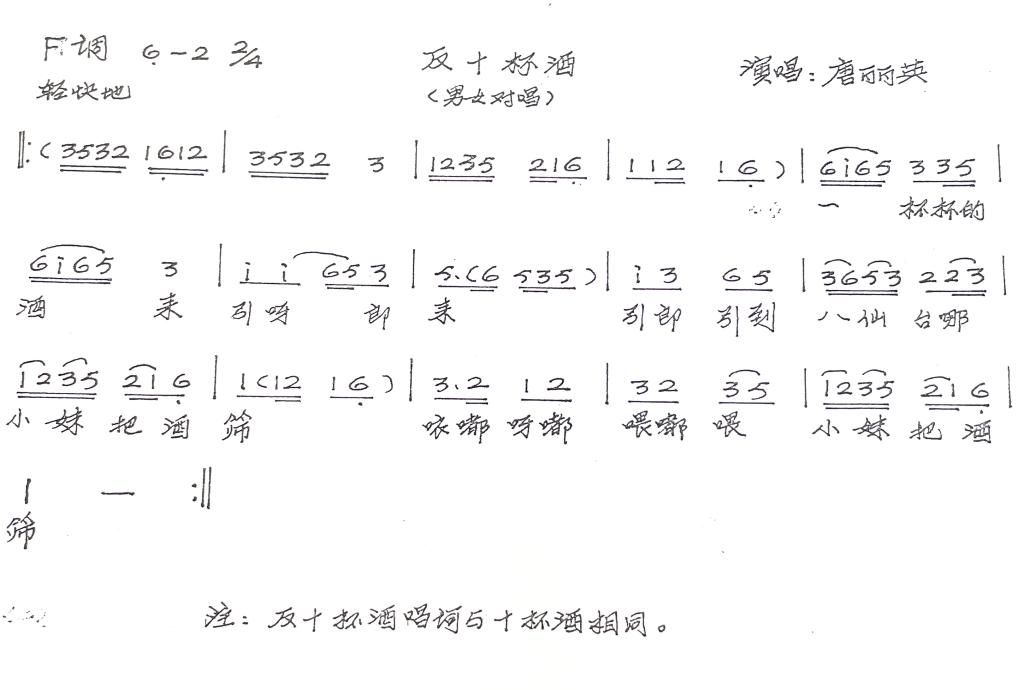 F调 6̣-2 2/4 反十杯酒 演唱：唐丽英
轻快地 （男女对唱）
‖:( 3532 16̣12 | 3532 3 | 1235 216̣ | 112 16̣ ) | 6i65 335 |
一 杯杯的
6i65 3 | i i 653 | 5.(6 535) | i3 65 | 3653 223 |
酒 来 引呀 郎 来 引郎 引到 八仙 台哪
1235 216̣ | 1(12 16̣) | 3.2 12 | 32 35 | 1235 216̣ |
小妹 把酒 筛 咳嘟 呀嘟 喂嘟 喂 小妹 把酒
1 — :‖
筛
注：反十杯酒唱词与十杯酒相同。